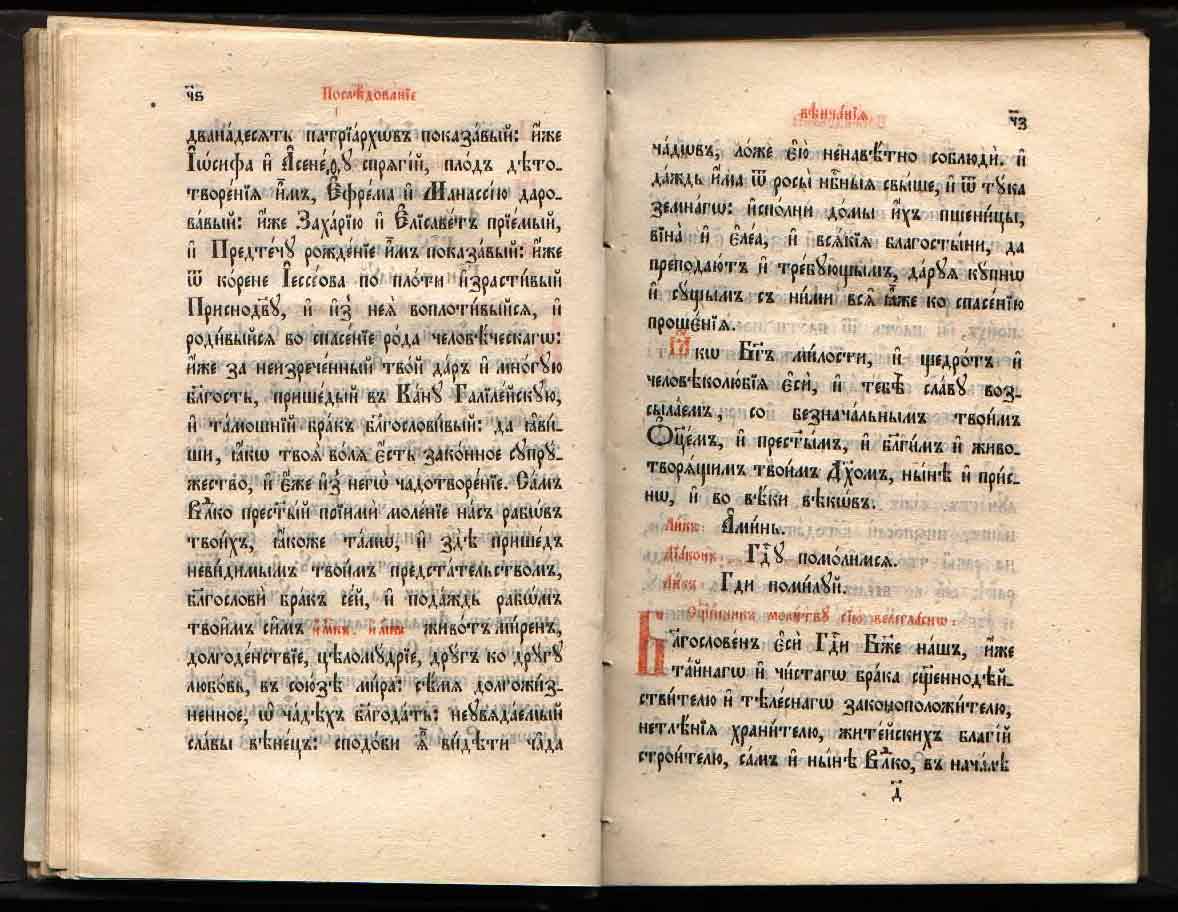 ч҃ѕ Послѣ́дованїе
двана́десѧть патрїа́рхѡвъ показа́вый: и҆́же
І҆ѡ́сифа и҆ А҆сене́ѳꙋ спрѧгі́й, пло́дъ дѣто-
творе́нїѧ и҆̀мъ, Є҆фре́ма и҆ Манассі́ю даро-
ва́вый: и҆́же Заха́рїю и҆ Є҆лїсаве́тъ прїе́мый,
и҆ Предте́чꙋ рожде́нїе и҆̀мъ показа́вый: и҆́же
ѿ ко́рене І҆ессе́ова по пло́ти и҆зрасти́вый
Приснодв҃ꙋ, и҆ и҆з̾ неѧ̀ воплоти́выйсѧ, и҆
роди́выйсѧ во спасе́нїе ро́да человѣ́ческагѡ:
и҆́же за неизрече́нный тво́й да́ръ и҆ мно́гꙋю
бл҃гость, прише́дый въ Ка́нꙋ Галїле́йскꙋю,
и҆ та́мошнїй бра́къ бл҃гослови́вый: да ꙗ҆ви́-
ши, ꙗ҆́кѡ твоѧ̀ во́лѧ є҆́сть зако́нное сꙋпрꙋ́-
жество, и҆ є҆́же и҆з̾ негѡ̀ чадотворе́нїе. Са́мъ
Влⷣко прест҃ы́й прїимѝ моле́нїе на́съ рабѡ́въ
твои́хъ, ꙗ҆́коже та́мѡ, и҆ здѣ̀ прише́дъ
неви́димымъ твои́мъ предста́тельствомъ,
бл҃гословѝ бра́къ се́й, и҆ пода́ждь рабѡ́мъ
твои̑мъ си̑мъ и҆́мкъ. и҆́мкъ живо́тъ ми́ренъ,
долгоде́нствїе, цѣломꙋ́дрїе, дрꙋ́гъ ко дрꙋ́гꙋ
любо́вь, въ сою́зѣ ми́ра: сѣ́мѧ долгожи́з-
ненное, ѡ҆ ча́дѣхъ бл҃года́ть: неꙋвѧда́емый
сла́вы вѣне́цъ: сподо́би ѧ҆̀ ви́дѣти ча̑да
вѣнча́нїѧ ч҃з
ча́дѡвъ, ло́же є҆ю̀ ненавѣ́тно соблюдѝ. и҆
да́ждь и҆́ма ѿ росы̀ нбⷭ҇ныѧ свы́ше, и҆ ѿ тꙋ́ка
земна́гѡ: и҆спо́лни до́мы и҆́хъ пшени́цы,
вїна̀ и҆ є҆ле́а, и҆ всѧ́кїѧ благосты́ни, да
преподаю́тъ и҆ тре́бꙋющымъ, да́рꙋѧ кꙋ́пнѡ
и҆ сꙋ́щымъ съ ни́ми всѧ̑ ꙗ҆̀же ко спасе́нїю
проше́нїѧ.
Ꙗ҆́кѡ Бг҃ъ ми́лости, и҆ щедро́тъ и҆
человѣколю́бїѧ є҆сѝ, и҆ тебѣ̀ сла́вꙋ воз-
сыла́емъ, со безнача́льнымъ твои́мъ
Ѻ҆ц҃е́мъ, и҆ прест҃ы́мъ, и҆ бл҃ги́мъ и҆ живо-
творѧ́щимъ твои́мъ Дх҃омъ, ны́нѣ и҆ при́с-
нѡ, и҆ во вѣ́ки вѣкѡ́въ.
Ли́къ: А҆ми́нь.
Дїа́конъ: Гдⷭ҇ꙋ помо́лимсѧ.
Ли́къ: Гдⷭ҇и поми́лꙋй.
Сщ҃е́нникъ моли́твꙋ сїю̀ велегла́снѡ:
Благослове́нъ є҆сѝ Гдⷭ҇и Бж҃е на́шъ, и҆́же
та́йнагѡ и҆ чи́стагѡ бра́ка сщ҃еннодѣ́й-
ствителю и҆ тѣле́снагѡ законоположи́телю,
нетлѣ́нїѧ храни́телю, жите́йскихъ благі́й
строи́телю, са́мъ и҆ ны́нѣ Влⷣко, въ нача́лѣ
д҃